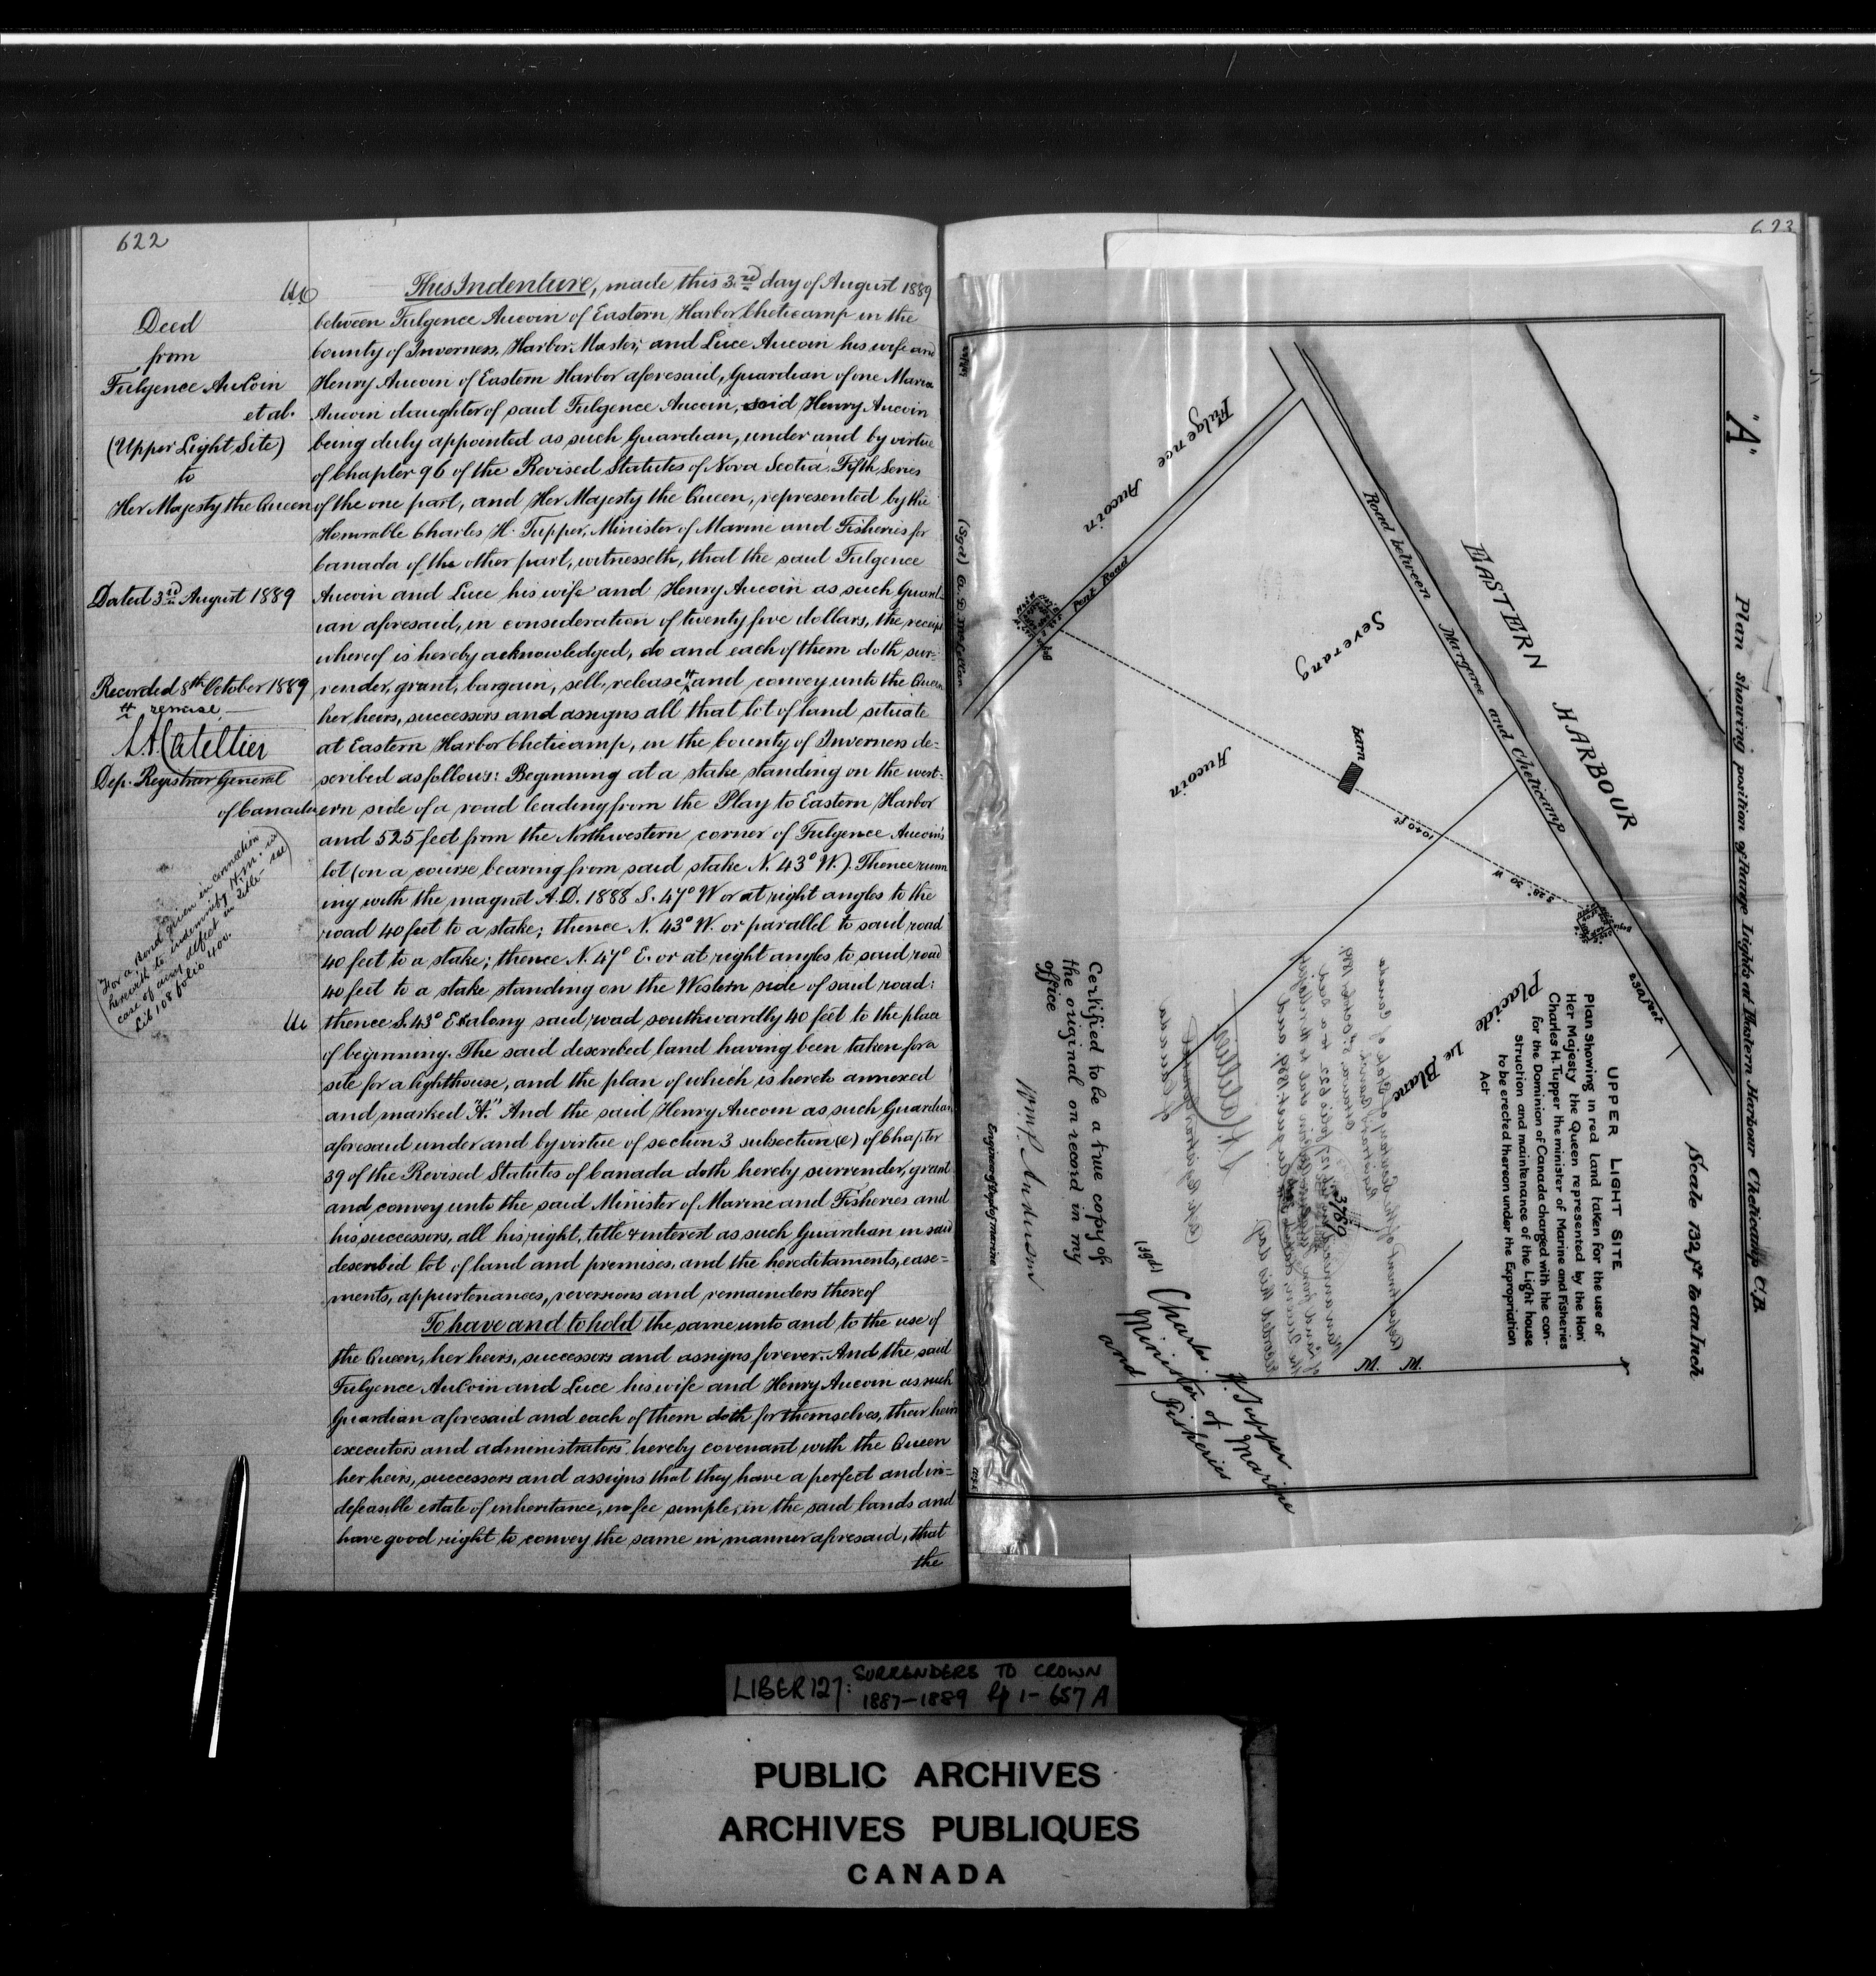 622
Deed
from
Fulgence AuCoin
et al.
(Upper Light Site)
to
Her Majesty the Queen
Dated 3rd August 1889
Recorded 8th October 1889
# remise
Dep. Registrar General
of Canada
(For a Bond given in connection
herewith to indemnify H.M. in
case of any defect in title - see
Lib 108 folio 400.)
This Indenture, made this 3rd day of August 1889
between Fulgence Aucoin of Eastern Harbor Cheticamp in the
County of Inverness, Harbor Master, and Luce Aucoin his wife and
Henry Aucoin of Eastern Harbor aforesaid, Guardian of one Maria
Aucoin daughter of said Fulgence Aucoin, said Henry Aucoin
being duly appointed as such Guardian, under and by virtue
of Chapter 96 of the Revised Statutes of Nova Scotia, Fifth Series
of the one part, and Her Majesty the Queen, represented by the
Honorable Charles H. Tupper, Minister of Marine and Fisheries for
Canada of the other part, witnesseth, that the said Fulgence
Aucoin and Luce his wife and Henry Aucoin as such Guard-
ian aforesaid, in consideration of twenty five dollars, the receipt
whereof is hereby acknowledged, do and each of them doth sur-
render, grant, bargain, sell, release # and convey unto the Queen
her heirs, successors and assigns all that lot of land situate
at Eastern Harbor Cheticamp, in the County of Inverness de-
scribed as follows: Beginning at a stake standing on the west-
ern side of a road leading from the Play to Eastern Harbor
and 525 feet from the Northwestern corner of Fulgence Aucoin's
lot (on a course bearing from said stake N. 43° W.). Thence runn
ing with the magnet A.D. 1888 S. 47° W or at right angles to the
road 40 feet to a stake; thence N. 43° W. or parallel to said road
40 feet to a stake; thence N. 47° E. or at right angles to said road
40 feet to a stake standing on the Western side of said road:
thence S. 43° E along said road southwardly 40 feet to the place
of beginning. The said described land having been taken for a
site for a lighthouse, and the plan of which is hereto annexed
and marked "A." And the said Henry Aucoin as such Guardian
aforesaid under and by virtue of section 3 subsection (e) of Chapter
39 of the Revised Statutes of Canada doth hereby surrender, grant
and convey unto the said Minister of Marine and Fisheries and
his successors, all his right, title & interest as such Guardian in said
described lot of land and premises, and the hereditaments, ease=
ments, appurtenances, reversions and remainders thereof
To have and to hold the same unto and to the use of
the Queen, her heirs, successors and assigns forever. And the said
Fulgence AuCoin and Luce his wife and Henry Aucoin as such
Guardian aforesaid and each of them doth for themselves, their heirs
executors and administrators hereby covenant with the Queen
her heirs, successors and assigns that they have a perfect and in=
defeasible estate of inheritance, in fee simple, in the said lands and
have good right to convey the same in manner aforesaid, that
the
623
"A"
Plan showing position of Range Lights at Eastern Harbour Cheticamp C.B.
Scale 132 ft to an Inch
UPPER LIGHT SITE
Plan Showing in red land taken for the use of
Her Majesty the Queen represented by the Hon
Charles H. Tupper the minister of Marine and Fisheries
for the Dominion of Canada charged with the con-
struction and maintenance of the Light house
to be erected thereon under the Expropriation
Act
EASTERN HARBOUR
Road between Margaree and Cheticamp
Fulgence Aucoin
Pent Road
Severang
Aucoin
barn
1040 ft
S 28° 30' W
230 feet
Placide Le Blanc
M. M.
3789
Certified to be a true copy of
the original on record in my
office
Wm P. Anderson
Engineer of Dept of marine
(Sgd) Charles H. Tupper
Minister of Marine
and Fisheries
LIBER 127: SURRENDERS TO CROWN
1887-1889 pp 1-657A
PUBLIC ARCHIVES
ARCHIVES PUBLIQUES
CANADA